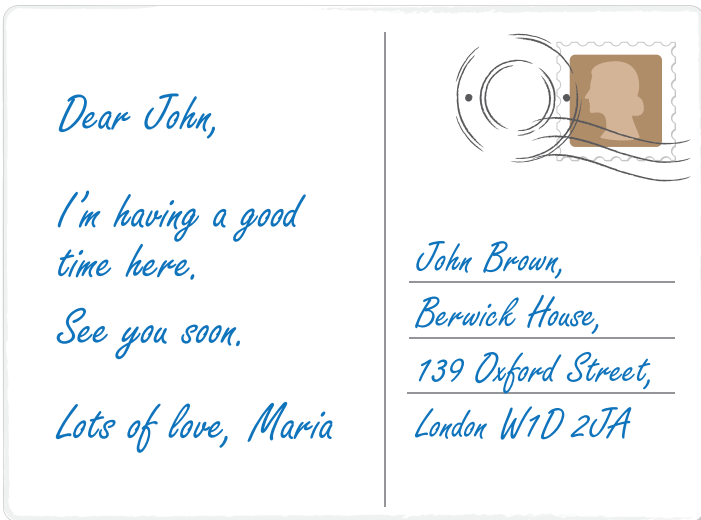 Dear John,
I'm having a good
time here.
See you soon.
Lots of love, Maria
John Brown,
Berwick House,
139 Oxford Street,
London W1D 2JA